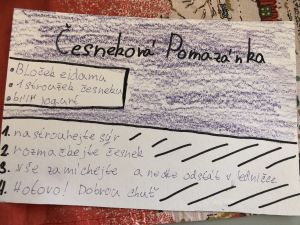 Česneková Pomazánka
• Bloček eidamu
• 1 stroužek česneku
• bílý jogurt
1. nastrouhejte sýr
2 rozmačkejte česnek
3. vše zamíchejte a nechte odstát v ledničce
4. Hotovo! Dobrou chuť